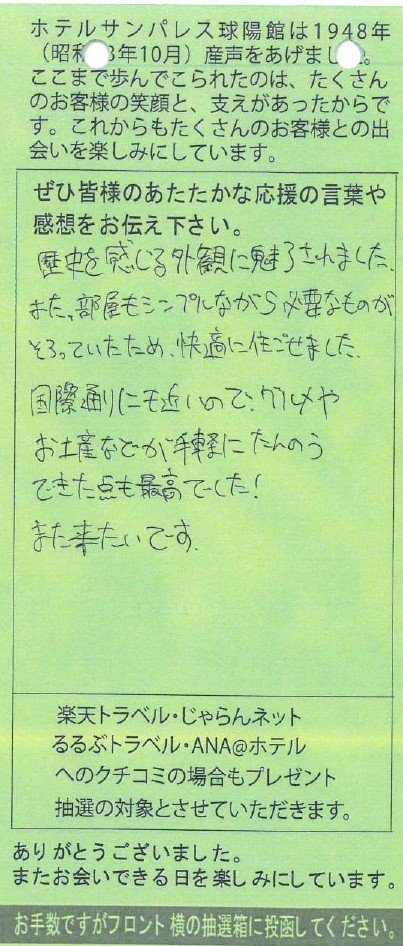 ホテルサンパレス球陽館は1948年
（昭和 3年10月）産声をあげまし 。
ここまで歩んでこられたのは、たくさん
のお客様の笑顔と、支えがあったからで
す。これからもたくさんのお客様との出
会いを楽しみにしています。
ぜひ皆様のあたたかな応援の言葉や
感想をお伝え下さい。
歴史を感じる外観に魅了されました。
また、部屋もシンプルながら必要なものが
そろっていたため、快適に住ごせました。
国際通りにも近いので、グルメや
お土産などが手軽にたんのう
できた点も最高でした!
また来たいです。
楽天トラベル・じゃらんネット
るるぶトラベル・ANA@ホテル
へのクチコミの場合もプレゼント
抽選の対象とさせていただきます。
ありがとうございました。
またお会いできる日を楽しみにしています。
お手数ですがフロント横の抽選箱に投函してください。